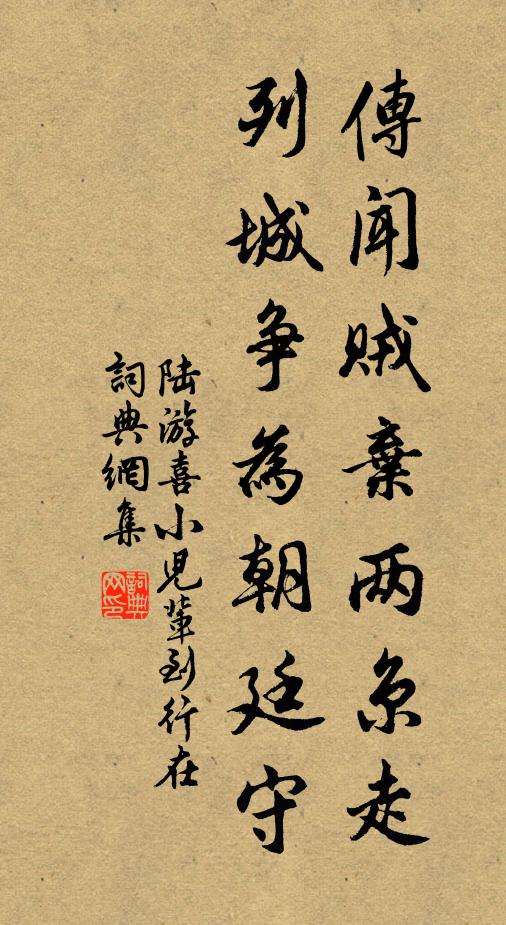 傳聞賊棄两京走
列城争為朝廷守
陆游喜小児輩到行在
詞典網集
詞典网印